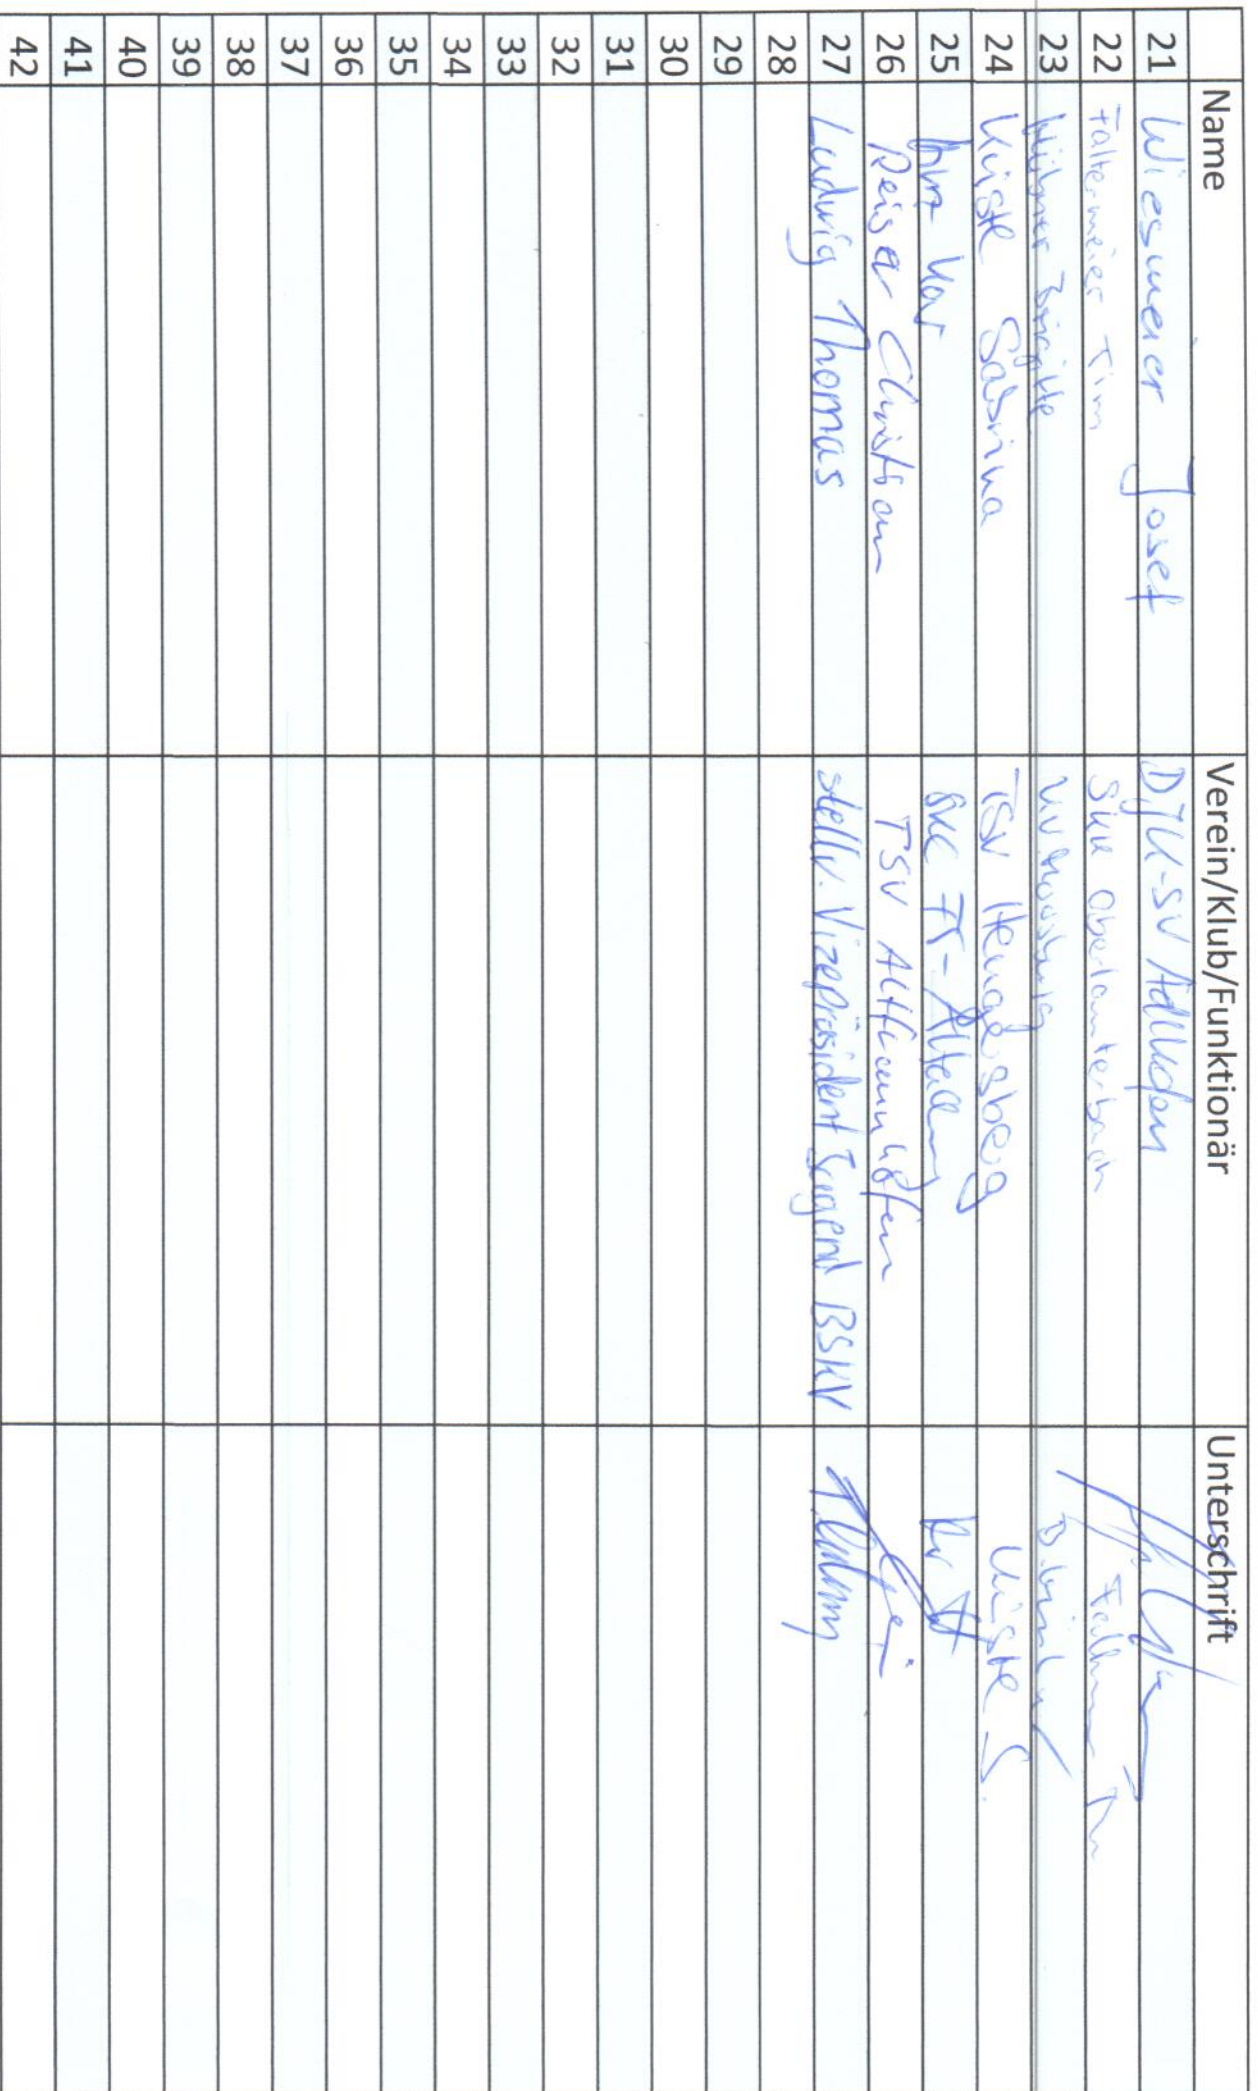 Name Verein/Klub/Funktionär Unterschrift
21 Wiesmeier Josef DJK-SV Adlkofen
22 Faltermeier Tim SKK Oberlauterbach Tim
23 Hübner Brigitte KV Moosburg
24 Küste Sabrina TSV Hengersberg Küste S.
25 Kurz SKC FS-
26 Reiser Christian TSV Altfraunhofen
27 Ludwig Thomas stellv. Vizepräsident Jugend BSKV T. Ludwig
28
29
30
31
32
33
34
35
36
37
38
39
40
41
42